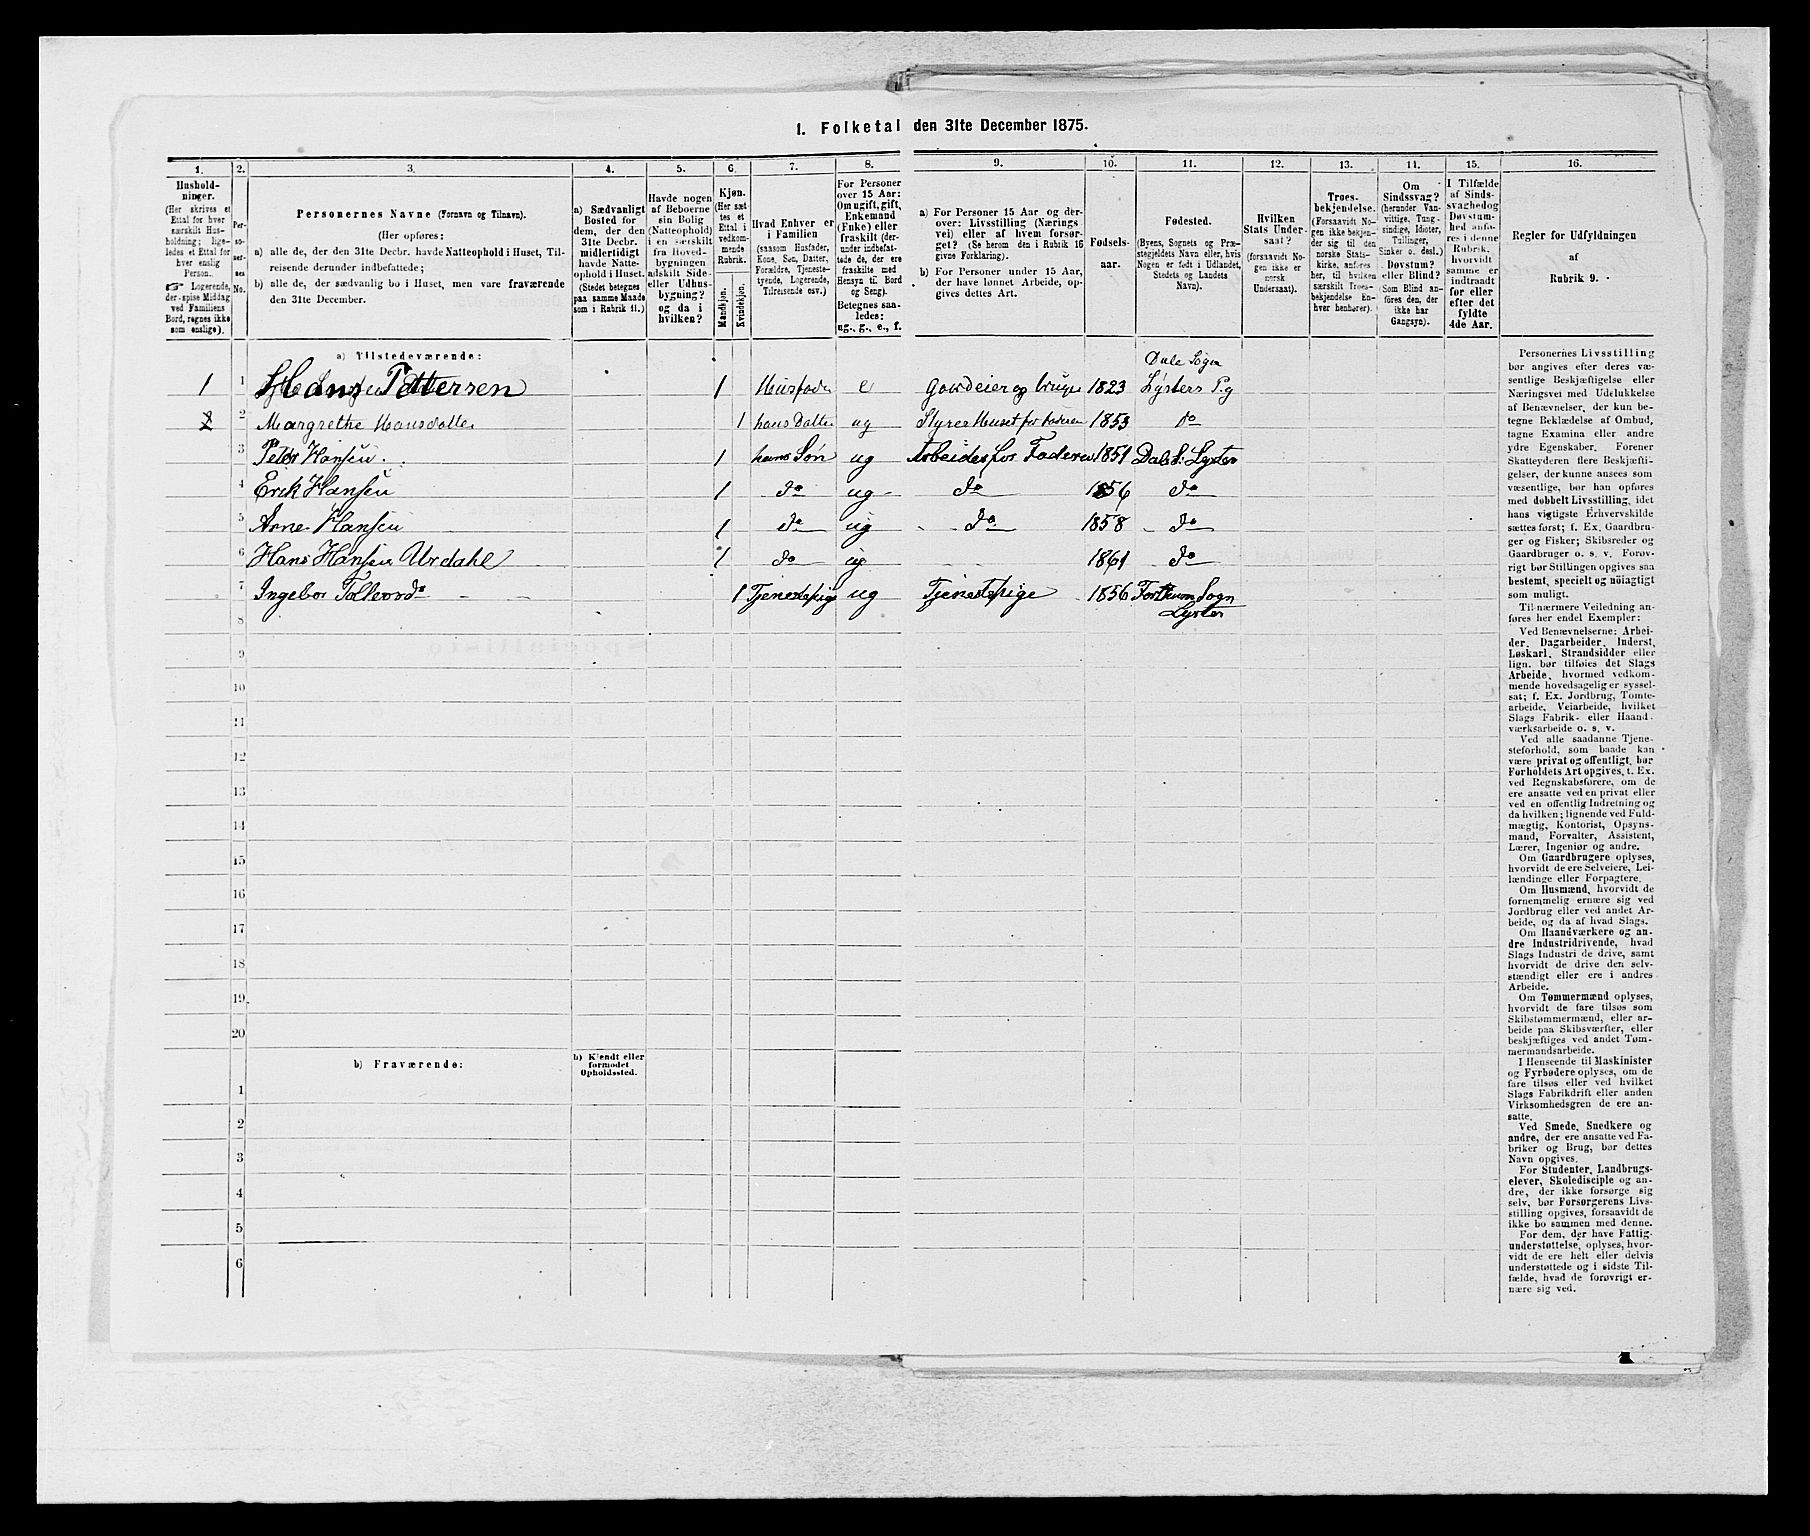 1. Folketal den 31te December 1875.
1.
Hushold-
ninger.
(Her skrives et
Ettal for hver
særskilt Hus-
holdning; lige-
ledes et Ettal for
hver enslig
Person.
☞ Logerende,
der spise Middag
ved Familiens
Bord, regnes ikke
som enslige).
2.
Per-
so-
ner-
nes
No.
3.
Personernes Navne (Fornavn og Tilnavn).
(Her opføres:
a) alle de, der den 31te Decbr. havde Natteophold i Huset, Til-
reisende derunder indbefattede;
b) alle de, der sædvanlig bo i Huset, men vare fraværende
den 31te December.
4.
a) Sædvanligt
Bosted for
dem, der den
31te Decbr.
midlertidigt
havde Natte-
ophold i Huset.
(Stedet betegnes
paa samme Maade
som i Rubrik 11.)
5.
Havde nogen
af Beboerne
sin Bolig
(Natteophold)
i en særskilt
fra Hoved-
bygningen
adskilt Side-
eller Udhus-
bygning?
og da i
hvilken?
6.
Kjøn.
(Her sæt-
tes et
Ettal i
vedkom-
mende
Rubrik.
Mandkjøn.
Kvindekjøn.
7.
Hvad Enhver er
i Familien
(saasom Husfader,
Kone, Søn, Datter,
Forældre, Tjeneste-
tyende, Logerende,
Tilreisende osv.)
8.
For Personer
over 15 Aar:
Om ugift, gift,
Enkemand
(Enke) eller
fraskilt (der-
under indbefat-
tede de, der ere
fraskilte med
Hensyn til Bord
og Seng).
Betegnes saa-
ledes:
ug., g., e., f.
9.
a) For Personer 15 Aar og der-
over: Livsstilling (Nærings-
vei) eller af hvem forsør-
get? (Se herom den i Rubrik 16
givne Forklaring).
b) For Personer under 15 Aar,
der have lønnet Arbeide, op-
gives dettes Art.
10.
Fødsels-
aar.
11.
Fødested.
(Byens, Sognets og Præ-
stegjeldets Navn eller, hvis
Nogen er født i Udlandet,
Stedets og Landets
Navn).
12.
Hvilken
Stats Under-
saat?
(forsaavidt No-
gen ikke er
norsk
Undersaat).
13.
Troes-
bekjendelse.
(Forsaavidt No-
gen ikke bekjen-
der sig til den
norske Stats-
kirke, anføres
her, til hvilken
særskilt Troes-
bekjendelse En-
hver henhører).
14.
Om
Sindssvag?
(herunder Van-
vittige, Tung-
sindige, Idioter,
Tullinger,
Sinker o. desl.)
Døvstum?
eller Blind?
(Som Blind an-
føres den, der
ikke har
Gangsyn).
15.
I Tilfælde
af Sinds-
svaghed og
Døvstum-
hed anfø-
res i denne
Rubrik,
hvorvidt
samme er
indtraadt
før eller
efter det
fyldte
4de Aar.
16.
Regler for Udfyldningen
af
Rubrik 9.
a) Tilstedeværende:
Dale Sogn
1 1 Hans Pettersen 1 Husfader e Gaardeier og bruger 1823 Lysters Pg
2 2 Margrethe Hansdatter 1 hans Datter ug Styrer Huset for faderen 1853 do
3 Peter Hansen. 1 hans Søn ug Arbeides for Faderen 1851 Dale S. Lyster
4 Erik Hansen 1 do ug do 1856 do
5 Arne Hansen 1 do ug do 1858 do
6 Hans Hansen Urdahl 1 do ug 1861 do
7 Ingebor 1 Tjenestepige ug Tjenestepige 1856 Forthun Sogn
8 Lyster
9
10
11
12
13
14
15
16
17
18
19
20
b) Fraværende:
b) Kjendt eller
formodet
Opholdssted.
1
2
3
4
5
6
Personernes Livsstilling
bør angives efter deres væ-
sentlige Beskjæftigelse eller
Næringsvei med Udelukkelse
af Benævnelser, der kun be-
tegne Beklædelse af Ombud,
tagne Examina eller andre
ydre Egenskaber. Forener
Skatteyderen flere Beskjæfti-
gelser, der kunne ansees som
væsentlige, bør han opføres
med dobbelt Livsstilling, idet
hans vigtigste Erhvervskilde
sættes først; f. Ex. Gaardbru-
ger og Fisker; Skibsreder og
Gaardbruger o. s. v. Forøv-
rigt bør Stillingen opgives saa
bestemt, specielt og nøiagtigt
som muligt.
Til nærmere Veiledning an-
føres her endel Exempler:
Ved Benævnelserne: Arbei-
der, Dagarbeider, Inderst,
Løskarl, Strandsidder eller
lign. bør tilføies det Slags
Arbeide, hvormed vedkom-
mende hovedsagelig er syssel-
sat; f. Ex. Jordbrug, Tomte-
arbeide, Veiarbeide, hvilket
Slags Fabrik- eller Haand-
værksarbeide o. s. v.
Ved alle saadanne Tjene-
steforhold, som baade kan
være privat og offentligt, bør
Forholdets Art opgives, t. Ex.
ved Regnskabsførere, om de
ere ansatte ved en privat eller
ved en offentlig Indretning og
da hvilken; lignende ved Fuld-
mægtig, Kontorist, Opsyns-
mand, Forvalter, Assistent,
Lærer, Ingeniør og andre.
Om Gaardbrugere oplyses,
hvorvidt de ere Selveiere, Lei-
lændinge eller Forpagtere.
Om Husmænd, hvorvidt de
fornemmelig ernære sig ved
Jordbrug eller ved andet Ar-
beide, og da af hvad Slags.
Om Haandværkere og an-
dre Industridrivende, hvad
Slags Industri de drive, samt
hvorvidt de drive den selv-
stændigt eller ere i andres
Arbeide.
Om Tømmermænd oplyses,
hvorvidt de fare tilsøs som
Skibstømmermænd, eller ar-
beide paa Skibsværfter, eller
beskjæftiges ved andet Tøm-
mermandsarbeide.
I Henseende til Maskinister
og Fyrbødere oplyses, om de
fare tilsøs eller ved hvilket
Slags Fabrikdrift eller anden
Virksomhedsgren de ere an-
satte.
Ved Smede, Snedkere og
andre, der ere ansatte ved Fa-
briker og Brug, bør dettes
Navn opgives.
For Studenter, Landbrugs-
elever, Skoledisciple og an-
dre, der ikke forsørge sig
selv, bør Forsørgerens Livs-
stilling opgives, forsaavidt de
ikke bo sammen med denne.
For dem, der have Fattig-
understøttelse, oplyses, hvor-
vidt de ere helt eller delvis
understøttede og i sidste Til-
fælde, hvad de forøvrigt er-
nære sig ved.